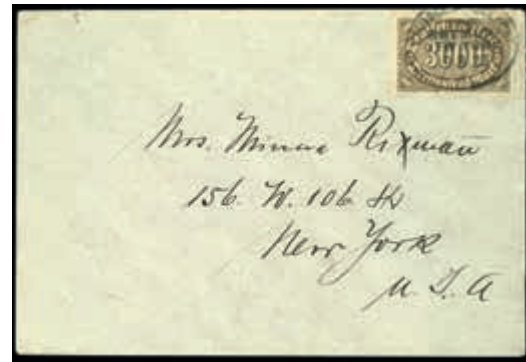 3000
Mrs. Minna Rixman
156. W. 106 St
New York
U. S. A